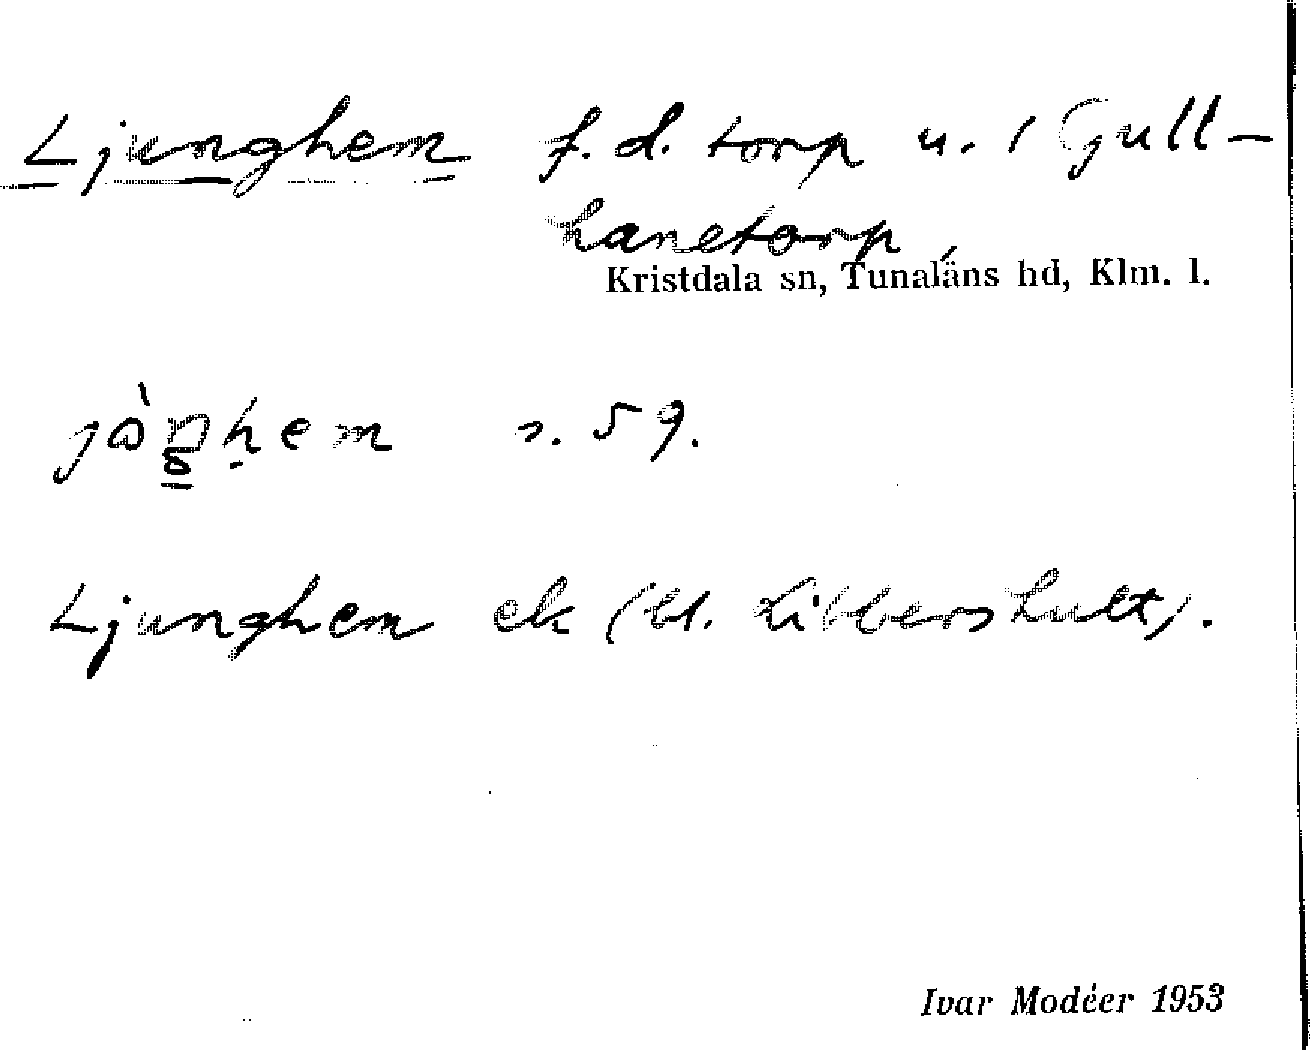 Ljunghem f.d. torp u. 1 Gull-
hanetorp,
Kristdala sn, Tunaläns hd, Klm. l.
s. 59.
Ljunghem ek (bl. Libbershult).
Ivar Modéer 1953